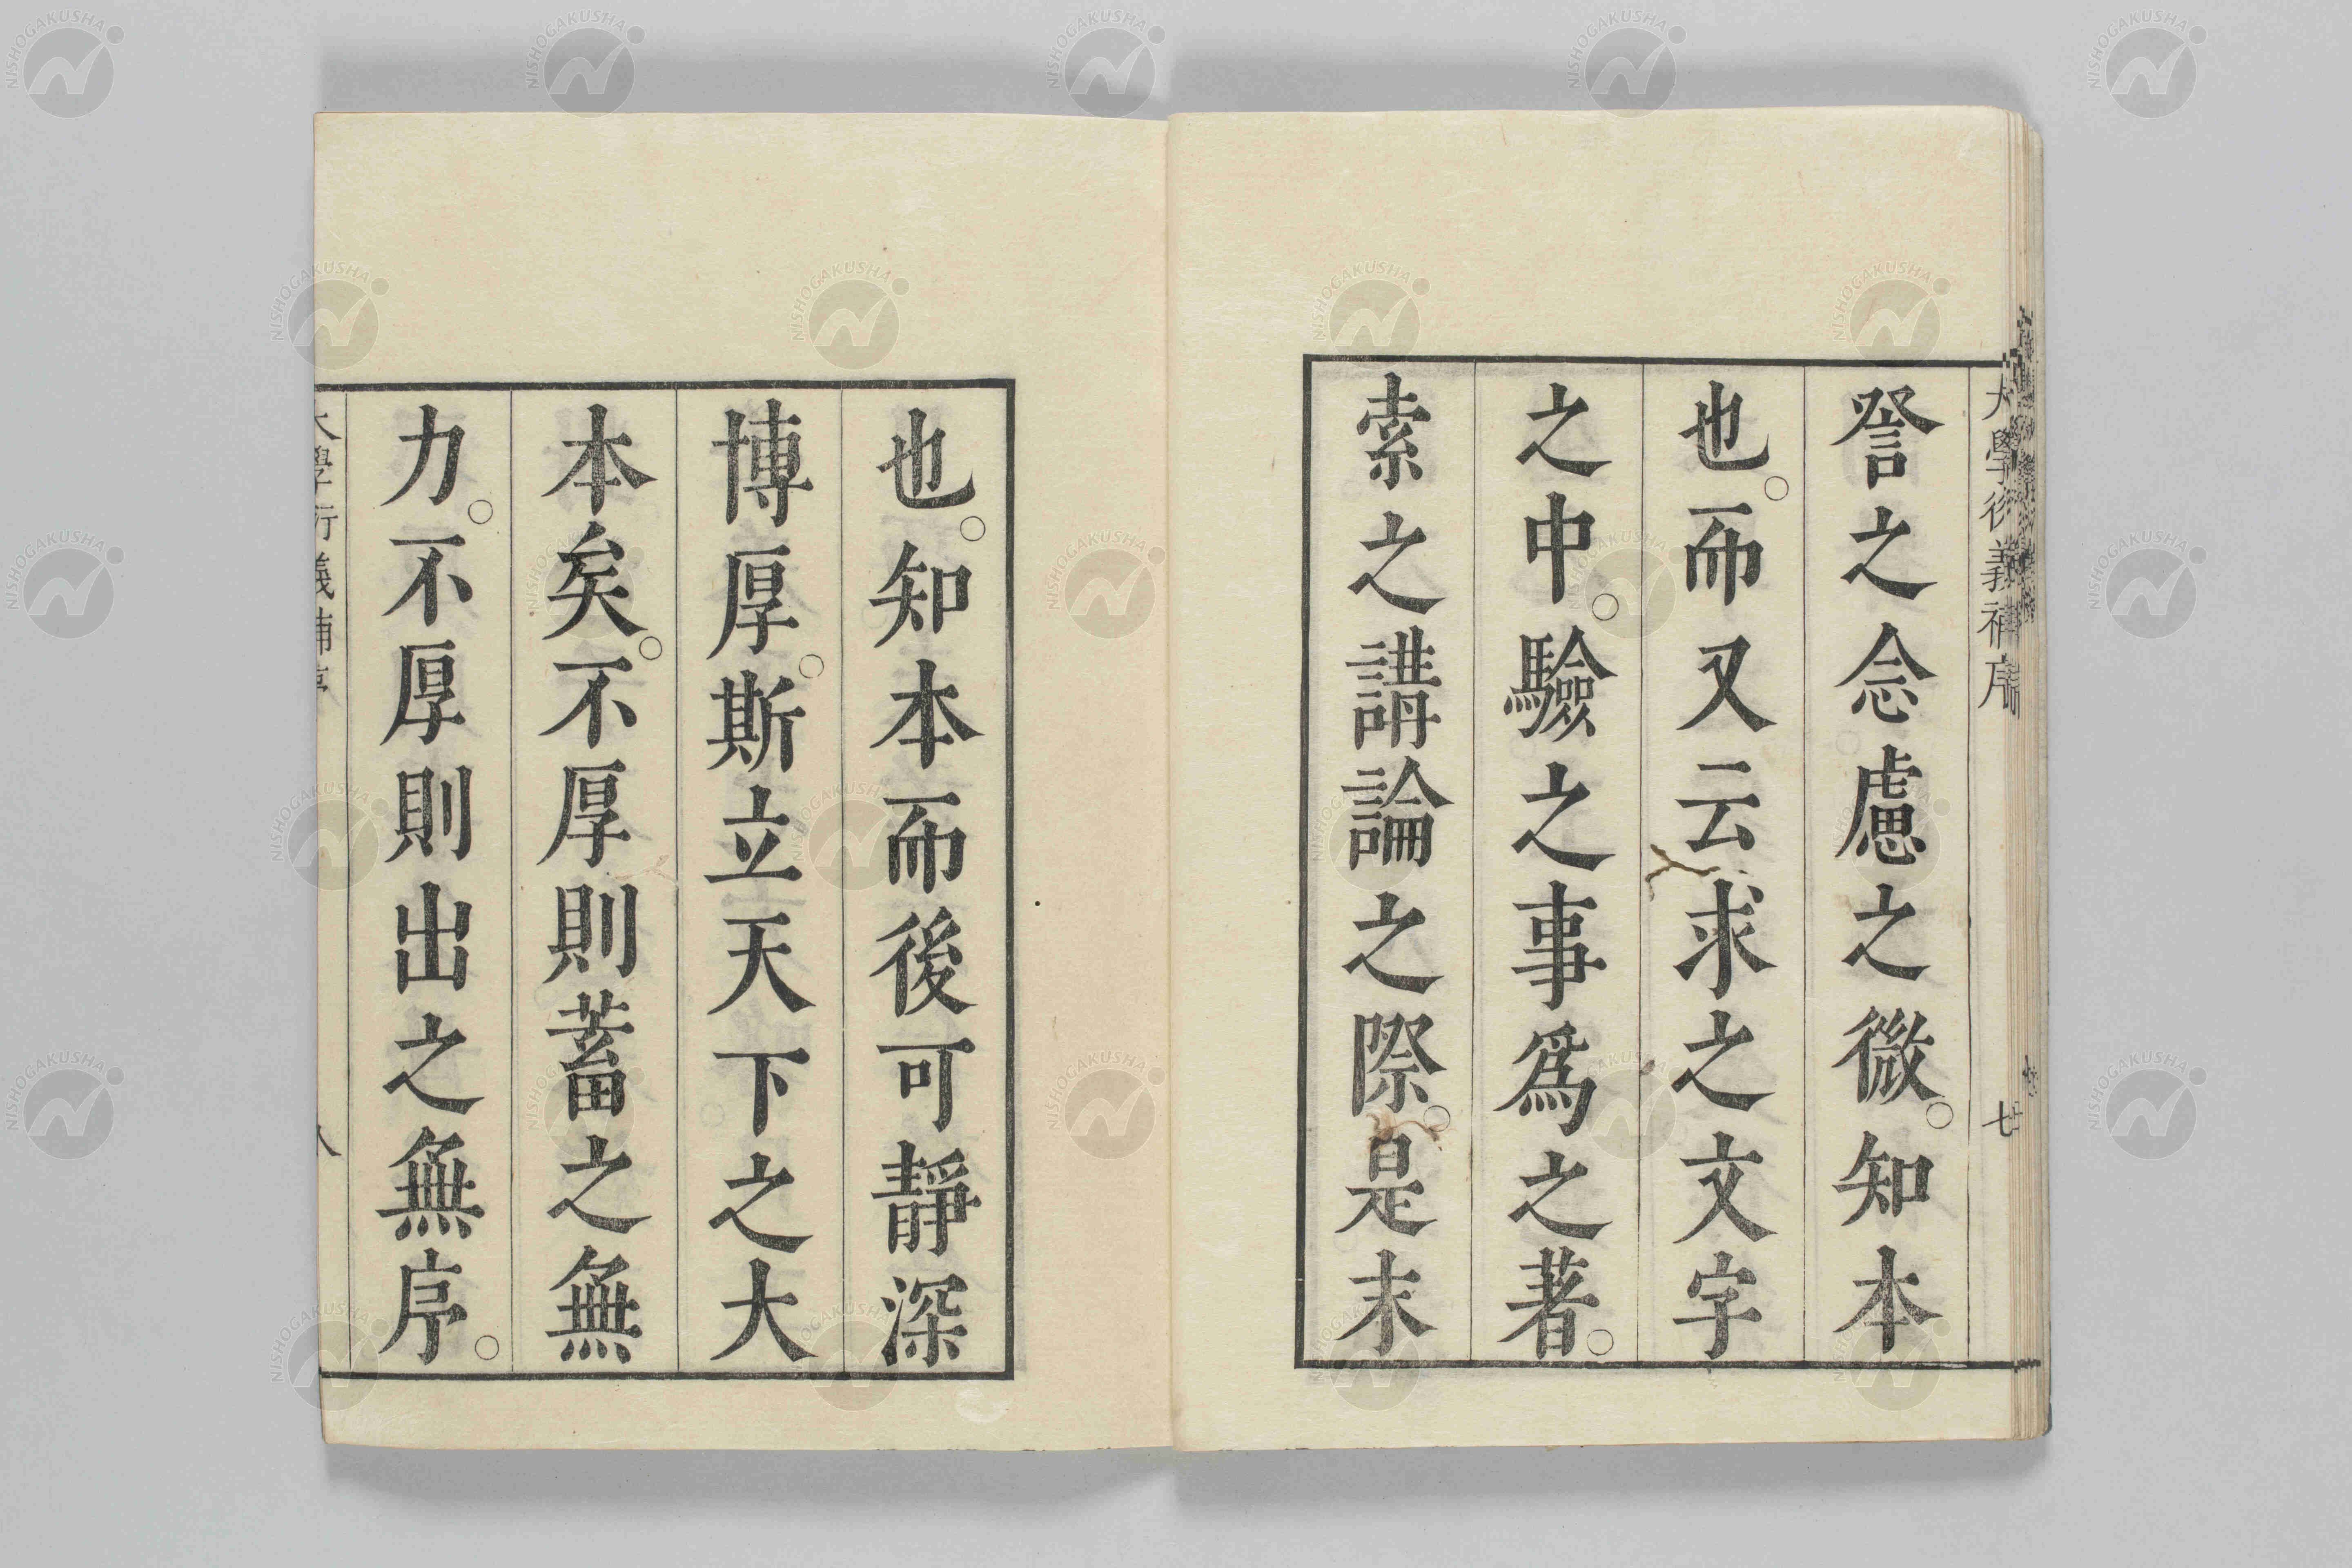 大學衍義補序 七
詧之念慮之微。知本
也。而又云求之文字
之中。驗之事爲之著。
索之講論之際。是末
也。知本而後可靜深
博厚。斯立天下之大
本矣。不厚則蓄之無
力。不厚則出之無序。
大學衍義補序 八
NISHOGAKUSHA